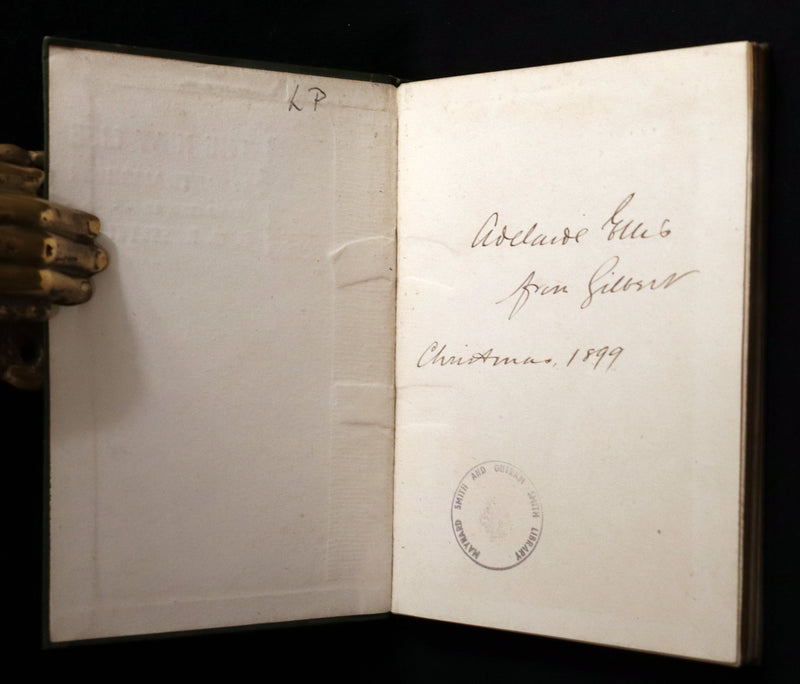 LP
Adelaide Ellis
from Gilbert
Christmas, 1899
MAYNARD SMITH AND OUTRAM SMITH LIBRARY